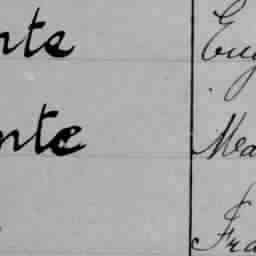 nte Eug
nte Ma
Fra